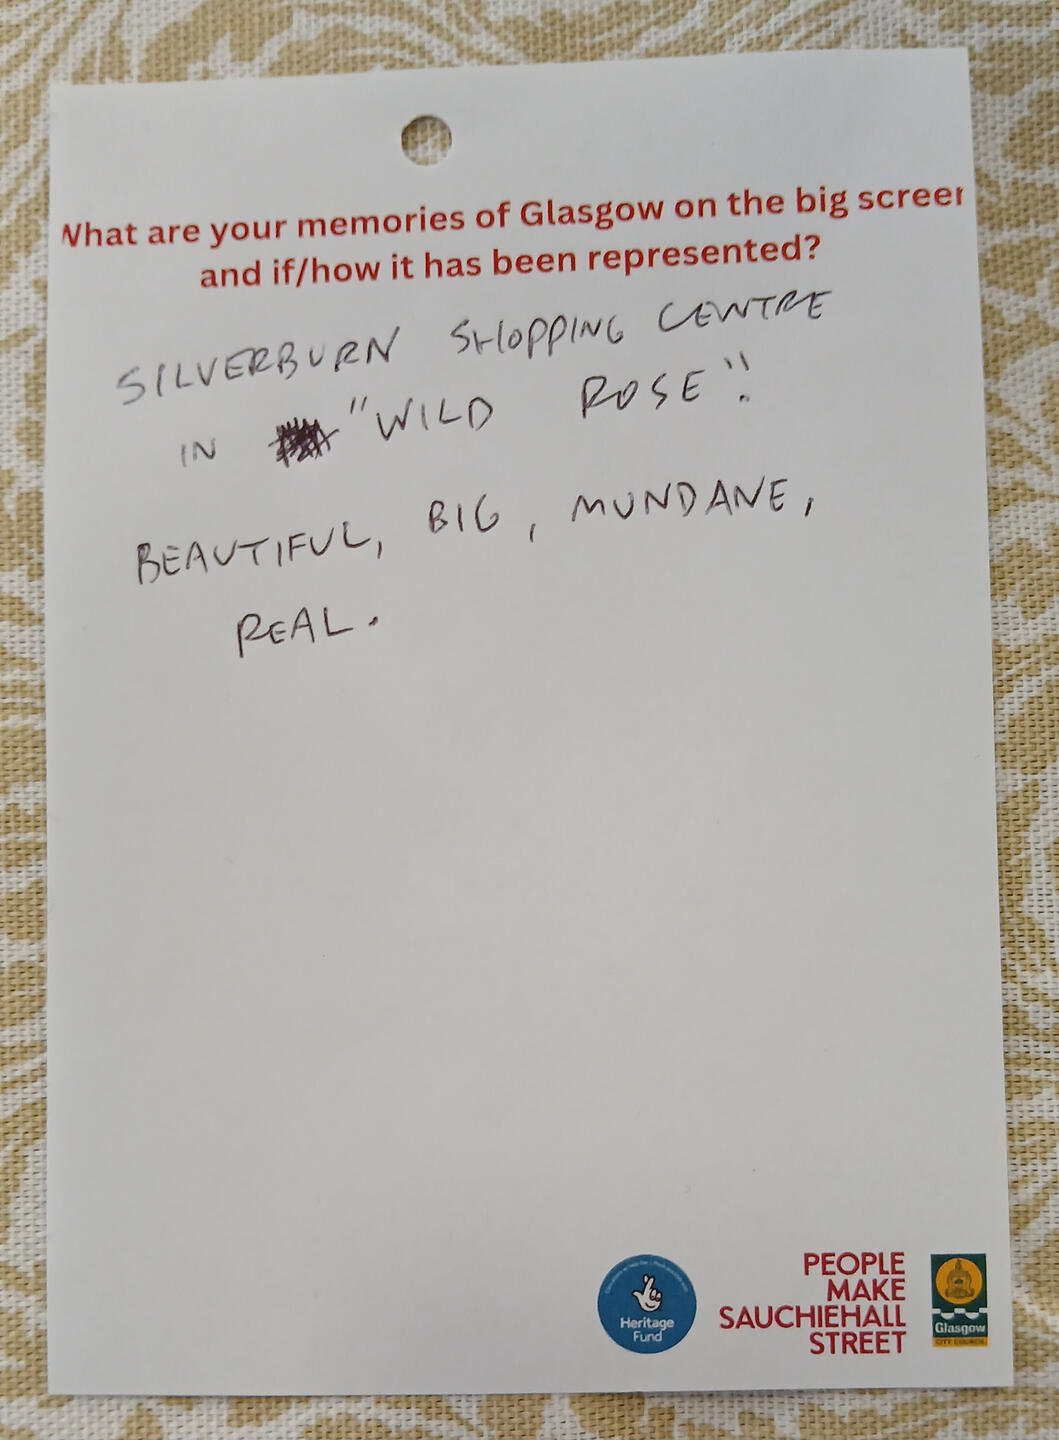 What are your memories of Glasgow on the big screen
and if/how it has been represented?
SILVERBURN SHOPPING CENTRE
IN "WILD ROSE".
BEAUTIFUL, BIG, MUNDANE,
REAL.
Heritage
Fund
PEOPLE
MAKE
SAUCHIEHALL
STREET
Glasgow
CITY COUNCIL